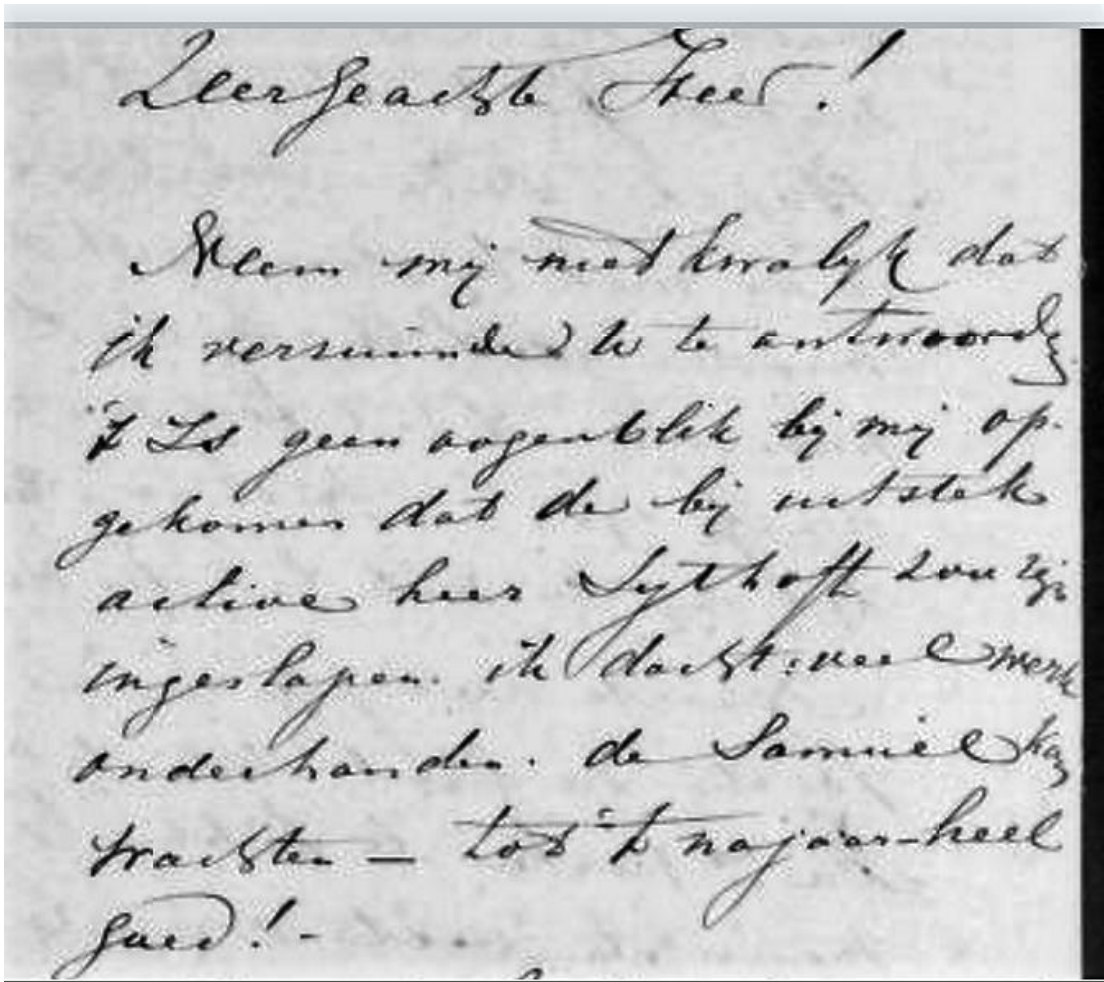 Zeergeachte Heer!
Neem mij niet kwalijk dat
ik verzuimde U te antwoorden
't Is geen oogenblik bij mij op-
gekomen dat de bij uitstek
active heer Sythoff zou zijn
ingeslapen. ik dacht: veel werk
onderhanden. de Samuel kan
wachten — tot 't najaar – heel
goed! -